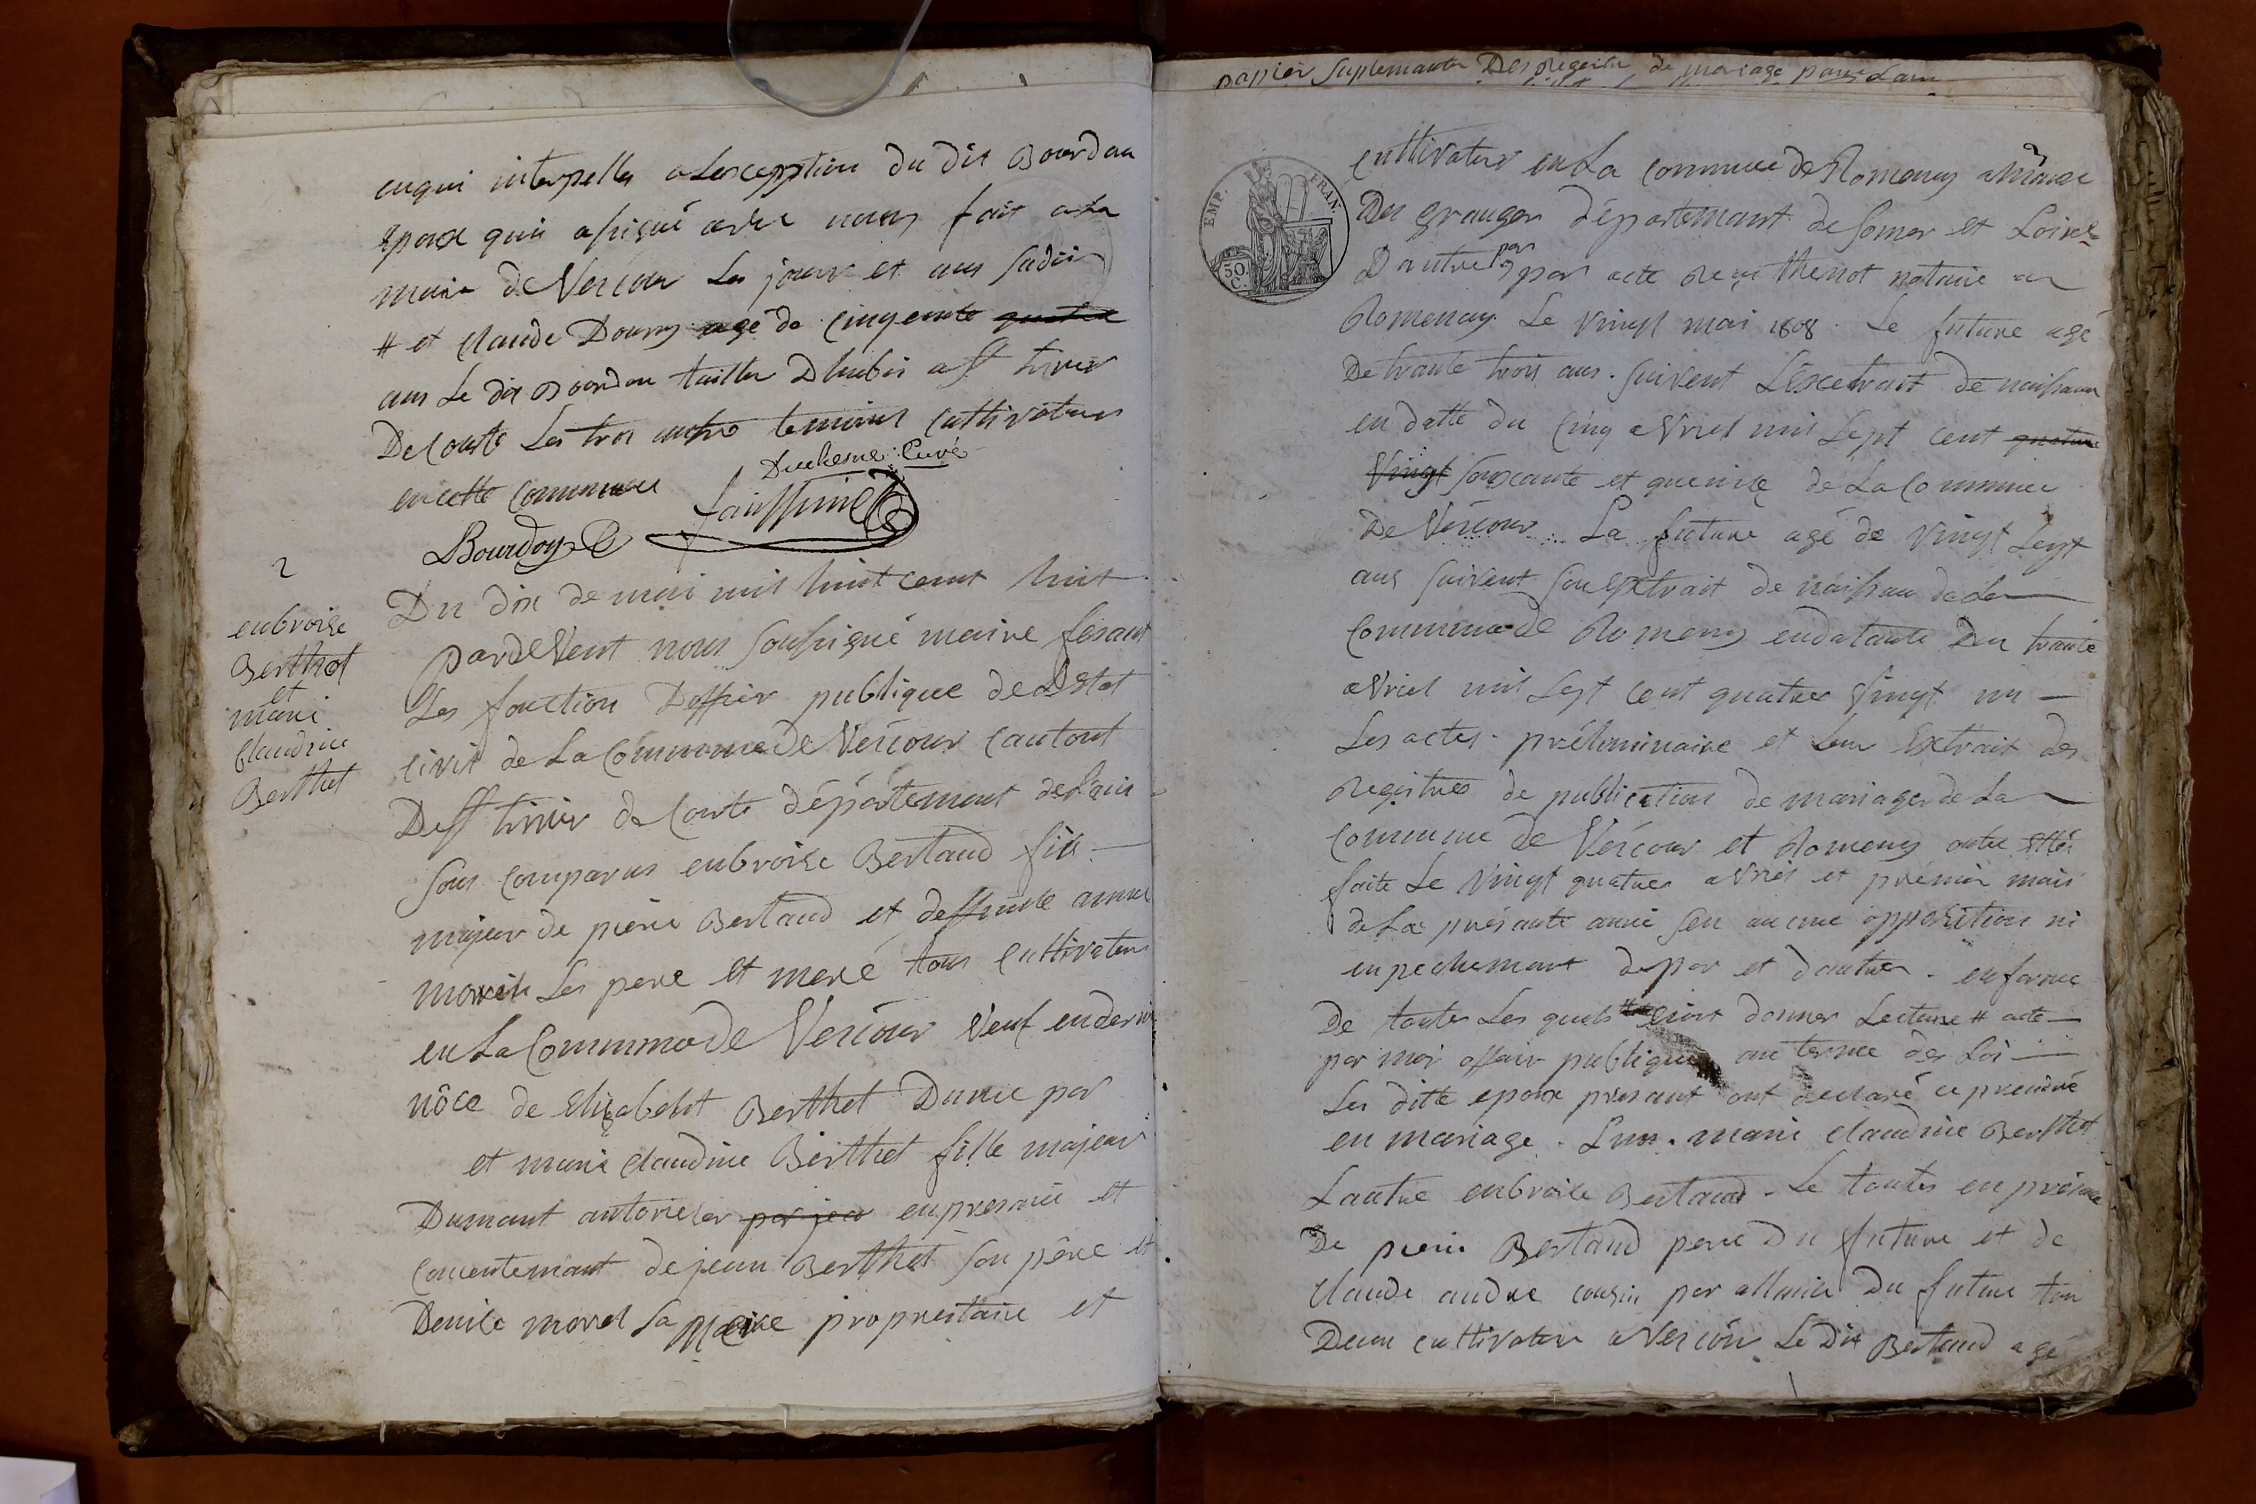 enqui interpelles a Lexception du dit Bourdon
epoux quii a signé avec nous fait a la
mairie de Vescour Les jour et ans sudis
# et Claude Doury agé de cinqente quatre
ans Le dit Bourdon tailler Dhabis a St trivier
De Courte Les trois autre temoins Cultivateurs
en cette Commune
Duchesne Curé
Bourdon
2
enbroise
Berthet
et
marie
Claudine
Berthet
Du dix de mai mil huit cent huit
par deVent nous soussigné maire fesant
Les fonction Doffier publique de L Etat
Civil de La Commune de Vescour Cantont
De St trivier de Courte département de Lain
Sont Comparus enbroise Bertaud fils
majeur de pierre Bertaud et deffunte anne
morel Les pere et mere tous Cultivateur
en La Commune de Vescour Veuf en dernier
nôce de Elizabeht Berthet Dune par
et marie Claudine Berthet fille majeur
Dumant autorieser par jea en presance et
Concentemant de jean Berthet son père et
Denise morel sa Meire proprietaire et
papier suplemanter Des Regestre de mariage pour Lan
EMP. FRAN.
50. C.
Cultivateur en La Commune de Romenay a
Des granges département de Sonne et Loire
Dautre par par acte Reçu thenot notaire a
Romenay Le Vingt mai 1808. Le future agé
De trante trois ans. suivent Lexcetrait de naissance
en datte du Cinq aVriel mil Sept Cent quatre
Vingt soixcante et queinze de La Commune
De Vescour. La future agé de Vingt Sept
ans suivent son Extrait de naissance de La
Commune de Romenay en datante Du trante
aVriel mil Sept Cent quatre Vingt un
Les actes préleminaire et Leur Extrait des
Registres de publication de mariages de La
Commune de Vescour et Romenay outre
faite Le Vingt quatres aVriel et premier mais
de La présante anné sen aucune opposition ni
enpechemant depar et dautres. en forme
De toutes Les quels donner Lecture # acte
par moi officir publique au terme des Loi
Les ditte epoux presant ont declaré ce prendre
en mariage. Lun. marie Claudine Berthet
Lautre enbroise Bertaud. Le toutes en présance
De pierre Bertaud pere Du future et de
Claude andre cousin par alliance Du future tou
Deux Cultivateur a Vescour Le Dit Bertaud agé